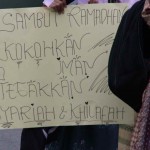 SAMBUT RAMADHAN
KOKOHKAN IMAN
TEGAKKAN
SYARIAH & KHILAFAH